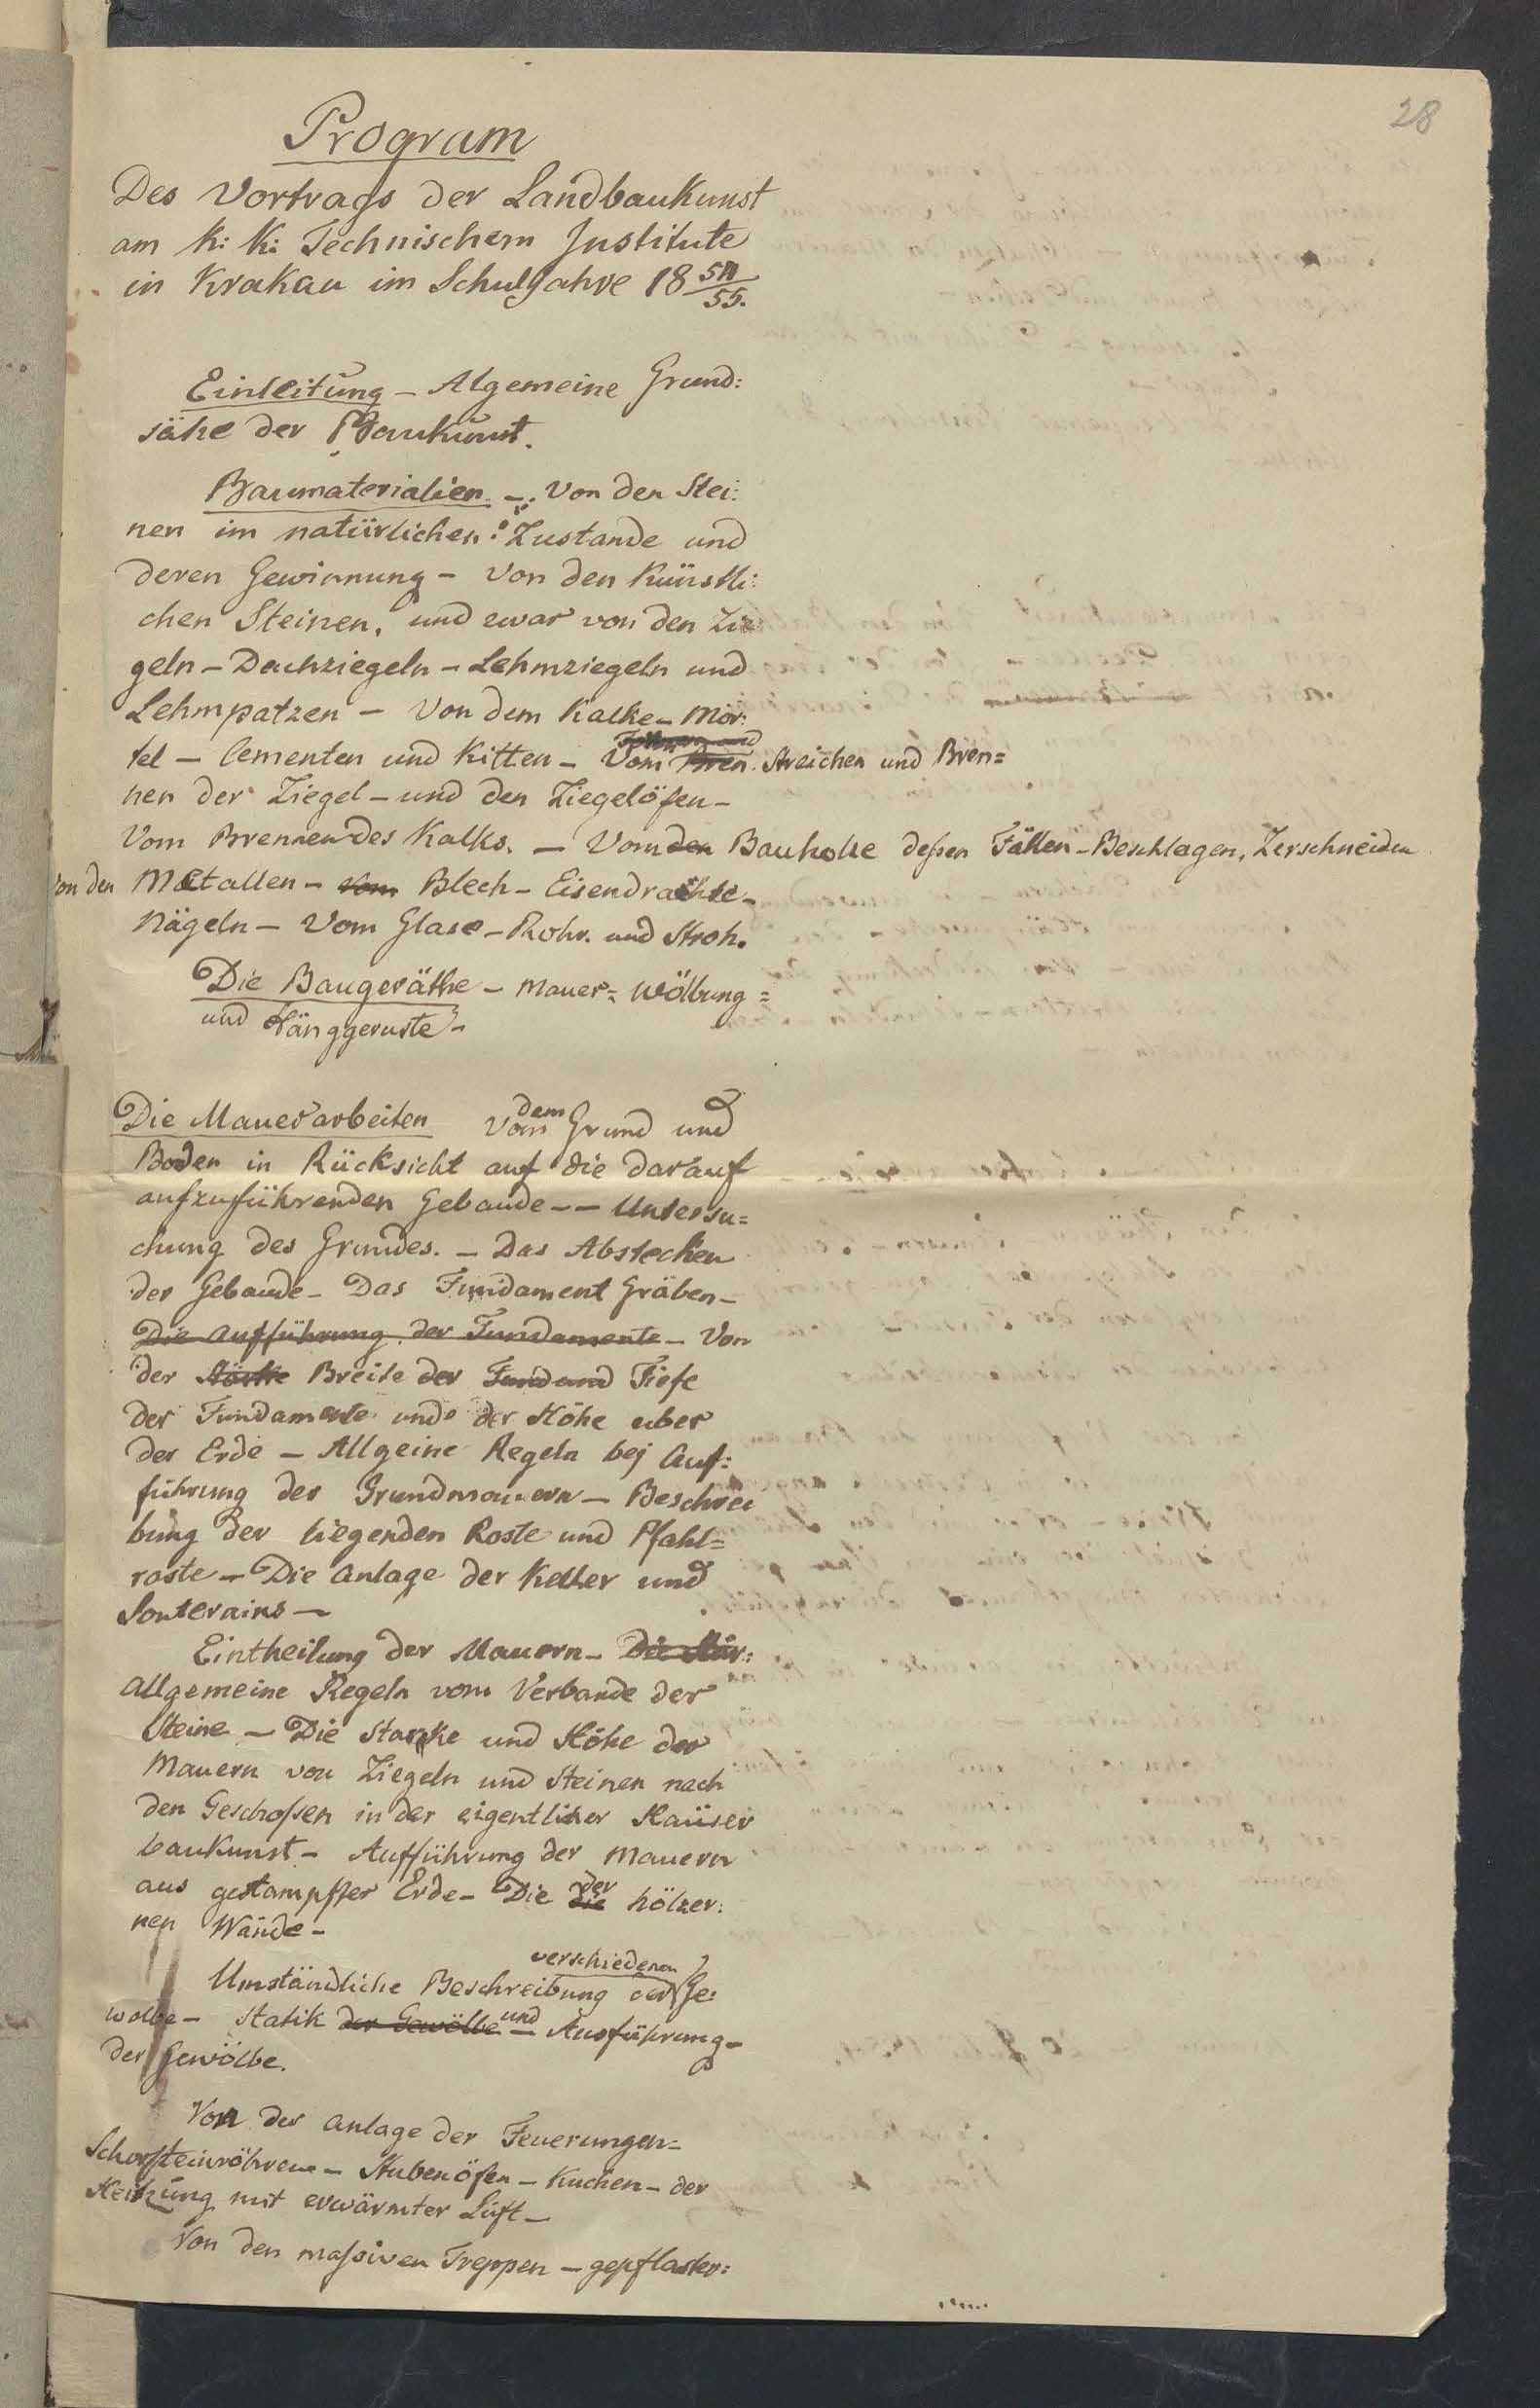 28
Program
Des Vortrags der Landbaukunst
am k: k: Technischem Institute
in Krakau im Schuljahre 18 54/55.
Einleitung – Algemeine Grund:
sätze der Baukunst.
Baumaterialien – Von den Stei:
nen im natürlichen Zustande und
deren Gewinnung – Von den Künstli:
chen Steinen, und zwar von den Zie
geln – Dachziegeln – Lehmziegeln und
Lehmpatzen – Von dem Kalke – Mör:
tel – Cementen und Kitten – Vom Bren Streichen und Bren=
nen der Ziegel – und den Ziegelöfen –
Vom Brennen des Kalks. – Vom den Bauholze deßen Fällen – Beschlagen, Zerschneiden
Von den Metallen – vom Blech – Eisendrahte –
Nägeln – Vom Glase – Rohr. und Stroh.
Die Baugeräthe – Mauer= Wölbung=
und Hänggeruste –
Die Mauerarbeiten Von dem Grund und
Boden in Rücksicht auf die darauf
aufzuführenden Gebaude – – Untersu=
chung des Grundes. – Das Abstecken
der Gebaude – Das Fundament Gräben –
Die Aufführung der Fundamente – Von
der Stärke Breite der Fund und Tiefe
der Fundamente und der Höhe uber
der Erde – Allgeine Regeln bej Auf:
führung der Grundmauern – Beschrei
bung der liegenden Roste und Pfahl=
roste – Die Anlage der Keller und
Souterains –
Eintheilung der Mauern – Die Stär:
Allgemeine Regeln vom Verbande der
Steine – Die Starke und Höhe der
Mauern von Ziegeln und Steinen nach
den Geschoßen in der eigentlicher Haüser
baukunst – Aufführung der Mauern
aus gestampfter Erde – Die die der hölzer:
nen Wände –
Umständliche Beschreibung der verschiedenen Ge:
wolbe – Statik der Gewölbe und Ausführung –
der Gewölbe.
Von der Anlage der Feuerungen=
Schorsteinröhren – Stubenöfen – Kuchen – der
Heitzung mit erwärmter Luft –
Von den maßiven Treppen – gepflaster: